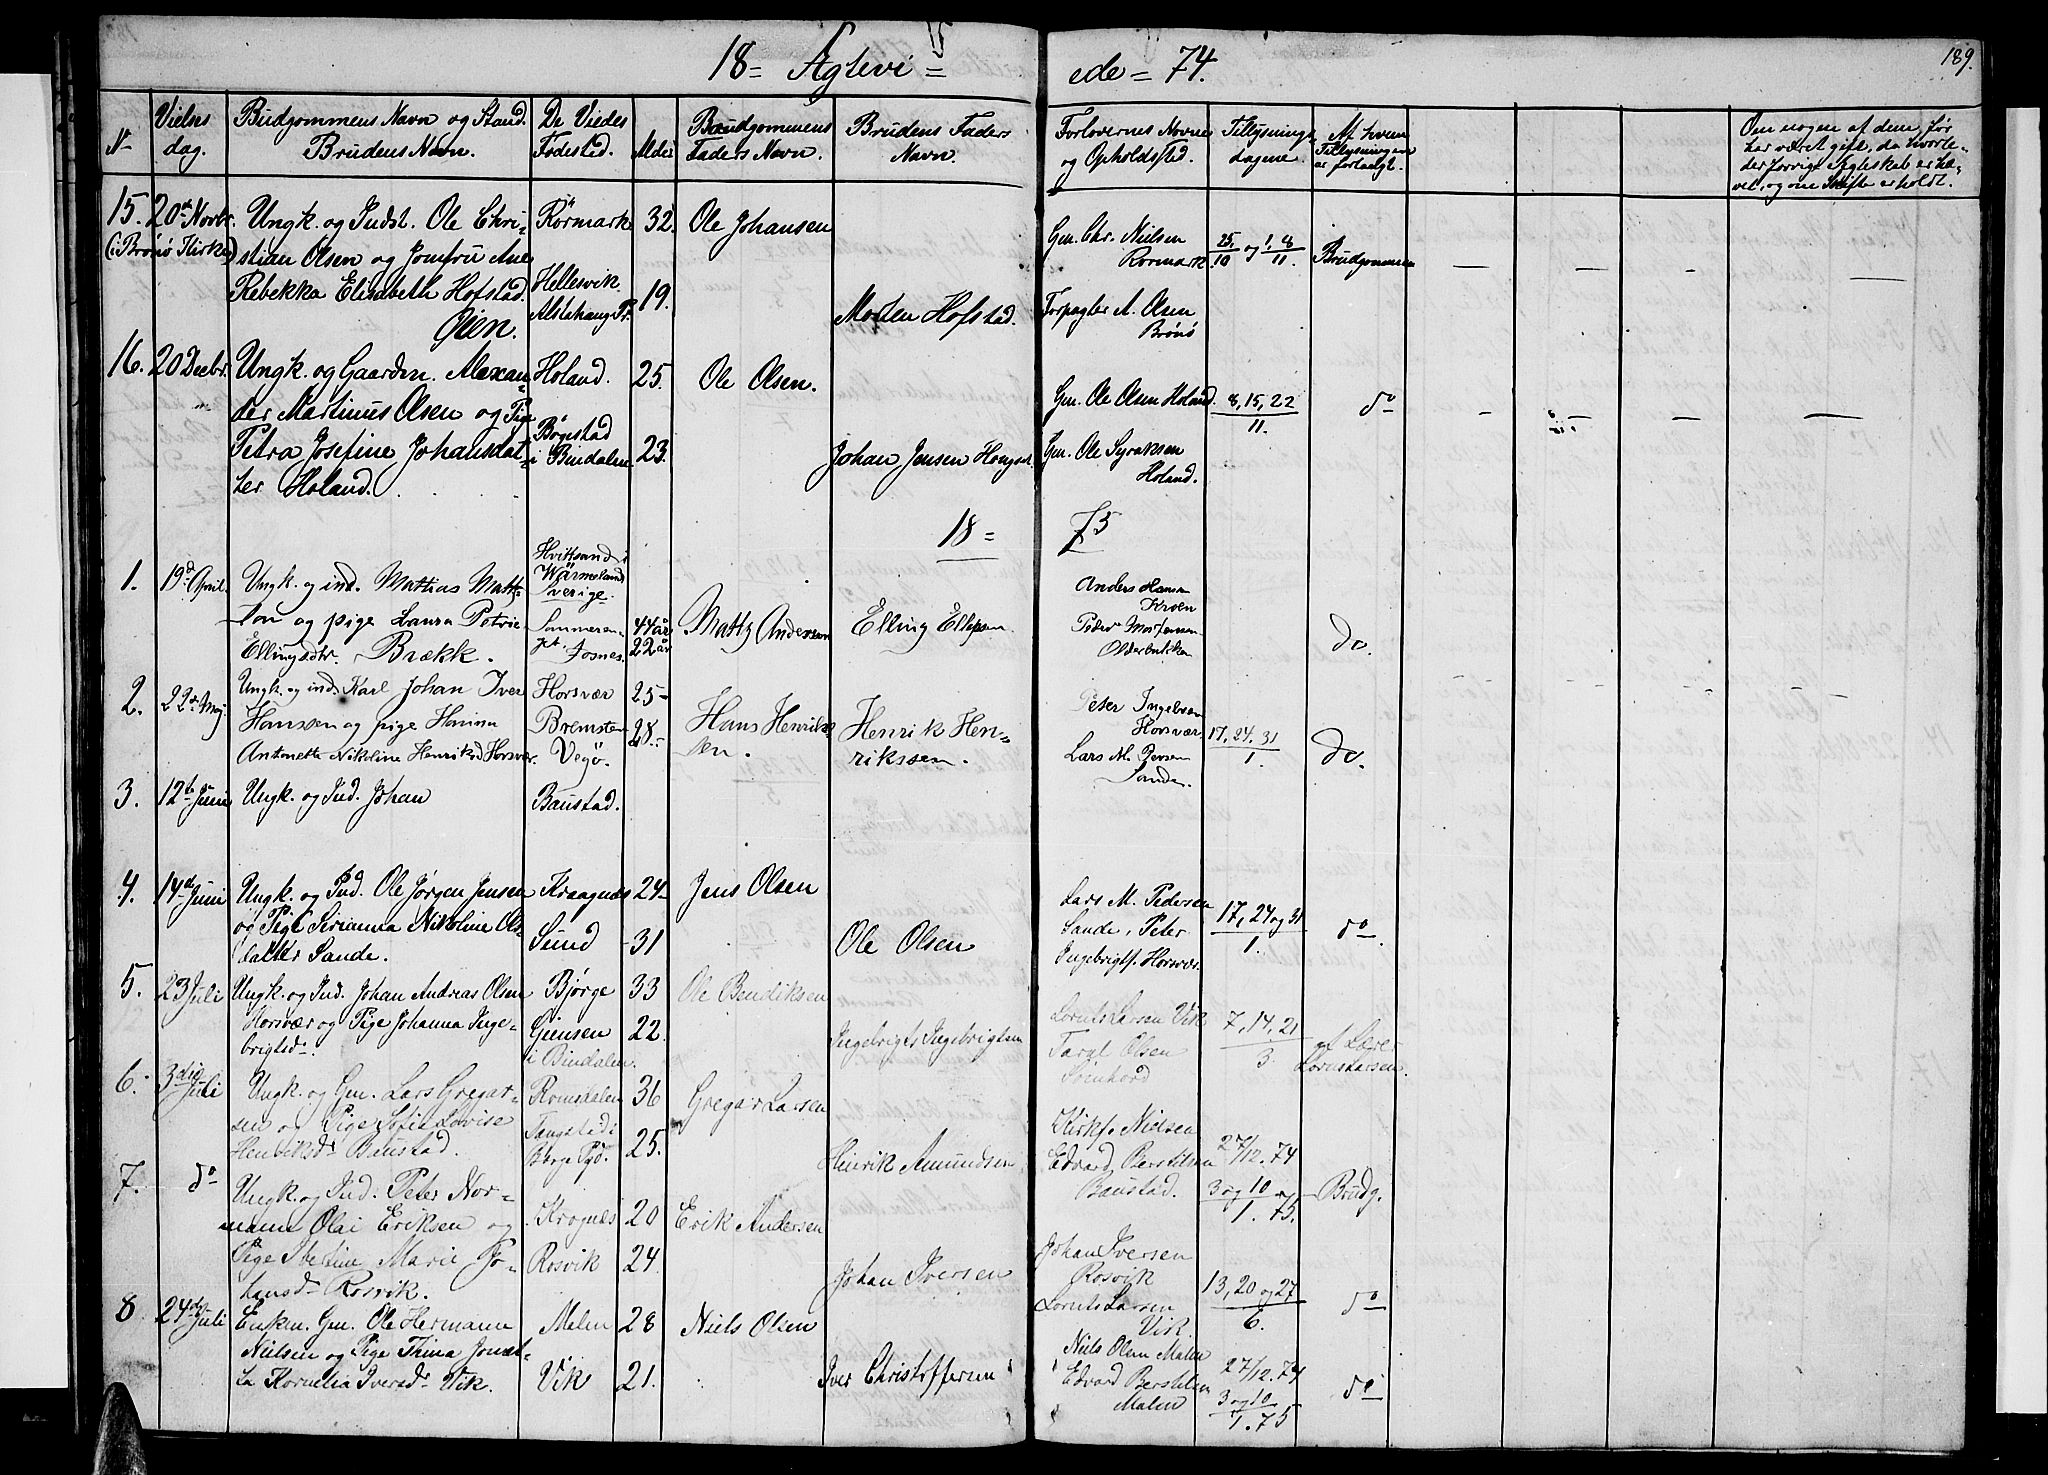 189.
18 = Ægtevi =
ede = 74.
N
Vielses
dag.
Budgommens Navn og Stand.
Brudens Navn.
De Viedes
Fødested.
Alder
Brudgommens
Faders Navn.
Brudens Faders
Navn.
Forlovernes Navne
og Opholdsted.
Tillysnings
dagene.
Af hvem
Tillysningen
er forlangt.
Om nogen af dem før
har været gift, da hvorle-
der forrige Ægteskab er hæ-
vet, og om Skifte er holdt.
15. 20de Novbr. Ungk. og Indst. Ole Chri- Rörmark 32. Ole Johansen
(i Brønø Kirke) stian Olsen og Jomfru Ane
Rebekka Elisabeth Hofstad.
Øien.
Hellesvik.
Alstahaug Pr. 19.
Morten Hofstad.
Gm. Chr. Nielsen
Rörmark
25/10 og 1, 8/11.
Brudgommen
Forpagter A. Olsen
Brønø
16. 20 Decbr. Ungk. og Gaardm. Alexan- Holand. 25. Ole Olsen.
der Martinus Olsen og Pige
Petra Josefine Johansdat-
ter Holand.
Bøgestad
i Bindalen 23.
Johan Jensen
Gm. Ole Olsen Holand.
8, 15, 22
11.
do
Gm. Ole Syraksen
Holand.
18 = 75
1. 19d April. Ungk. og ind. Mathias Matt-
son og pige Laura Petrie
Ellingsdtr. Brækk.
Hvittsand i
Wärmeland
Sverige.
44 år
22 år
Matts Anderson
Elling Ellefsen.
Anders Hansen
Kroen
Peder Mortensen
Olderbakken
do.
2. 22de Maj. Ungk. og ind. Karl Johan Iver
Hanssen og pige Hanna
Antonette Nikoline Henriksd Horsvær.
Horsvær 25-
Bremsten
Vegö. 28.-
Hans Henrik
sen.
Henrik Hen-
riksen.
Peter Ingebrigtsen
Horsvær
Lars M. Persen
Sande.
17, 24, 31
1.
do.
3. 12te Juni Ungk. og Ind. Johan Baustad.
4. 14d Juni Ungk. og Ind. Ole Jørgen Jensen Kraagnæs 24- Jens Olsen
og Pige Sirianna Nikoline Ols-
datter Sande.
Sund -31
Ole Olsen
Lars M. Pedersen
Sande, Peter
Ingebrigts. Horsvær.
17, 24 og 31
1.
do.
5. 23 Juli Ungk. og Ind. Johan Andreas Olsen Bjørge 33 Ole Bendiksen
Horsvær og Pige Johanna Inge-
brigtsd.
Gimsen 22.
i Bindalen.
Ingebrigt Ingebrigtsen
Lornts Larsen Vik
Taral Olsen
Sørnhord
7, 14, 21
3.
af Lærer
Lornts Larsen.
6. 3die Juli Ungk. og Gm. Lars Gregar- Romsdalen 36 Gregar Larsen
sen og Pige Sofie Lovise
Henriksd. Baustad.
Tangstad i
Borge Pgd. 25.
Hinrik Amundsen
Kirks. Nielsen
Edvard Berntsen
Baustad.
27/12. 74
3 og 10
1. 75.
Brudg.
7. do Ungk. og Ind. Peter Nor-
mann Olai Eriksen og
Pige Ibertine Marie Jo-
hansd. Rosvik.
Krognæs 20 Erik Andersen
Rosvik 24.
Johan Iversen
Johan Iversen
Rosvik
Lornts Larsen
Vik.
13, 20 og 27
6.
do
8. 24de Juli Enkm. Gm. Ole Hermann Malm 28 Niels Olsen
Nielsen og Pige Thina Jonet-
ta Kornelia Iversd. Vik.
Vik 21.
Iver Christoffersen
Niels Olsen Malm
Edvard Berntsen
Malm
27/12. 74
3 og 10
1. 75
do